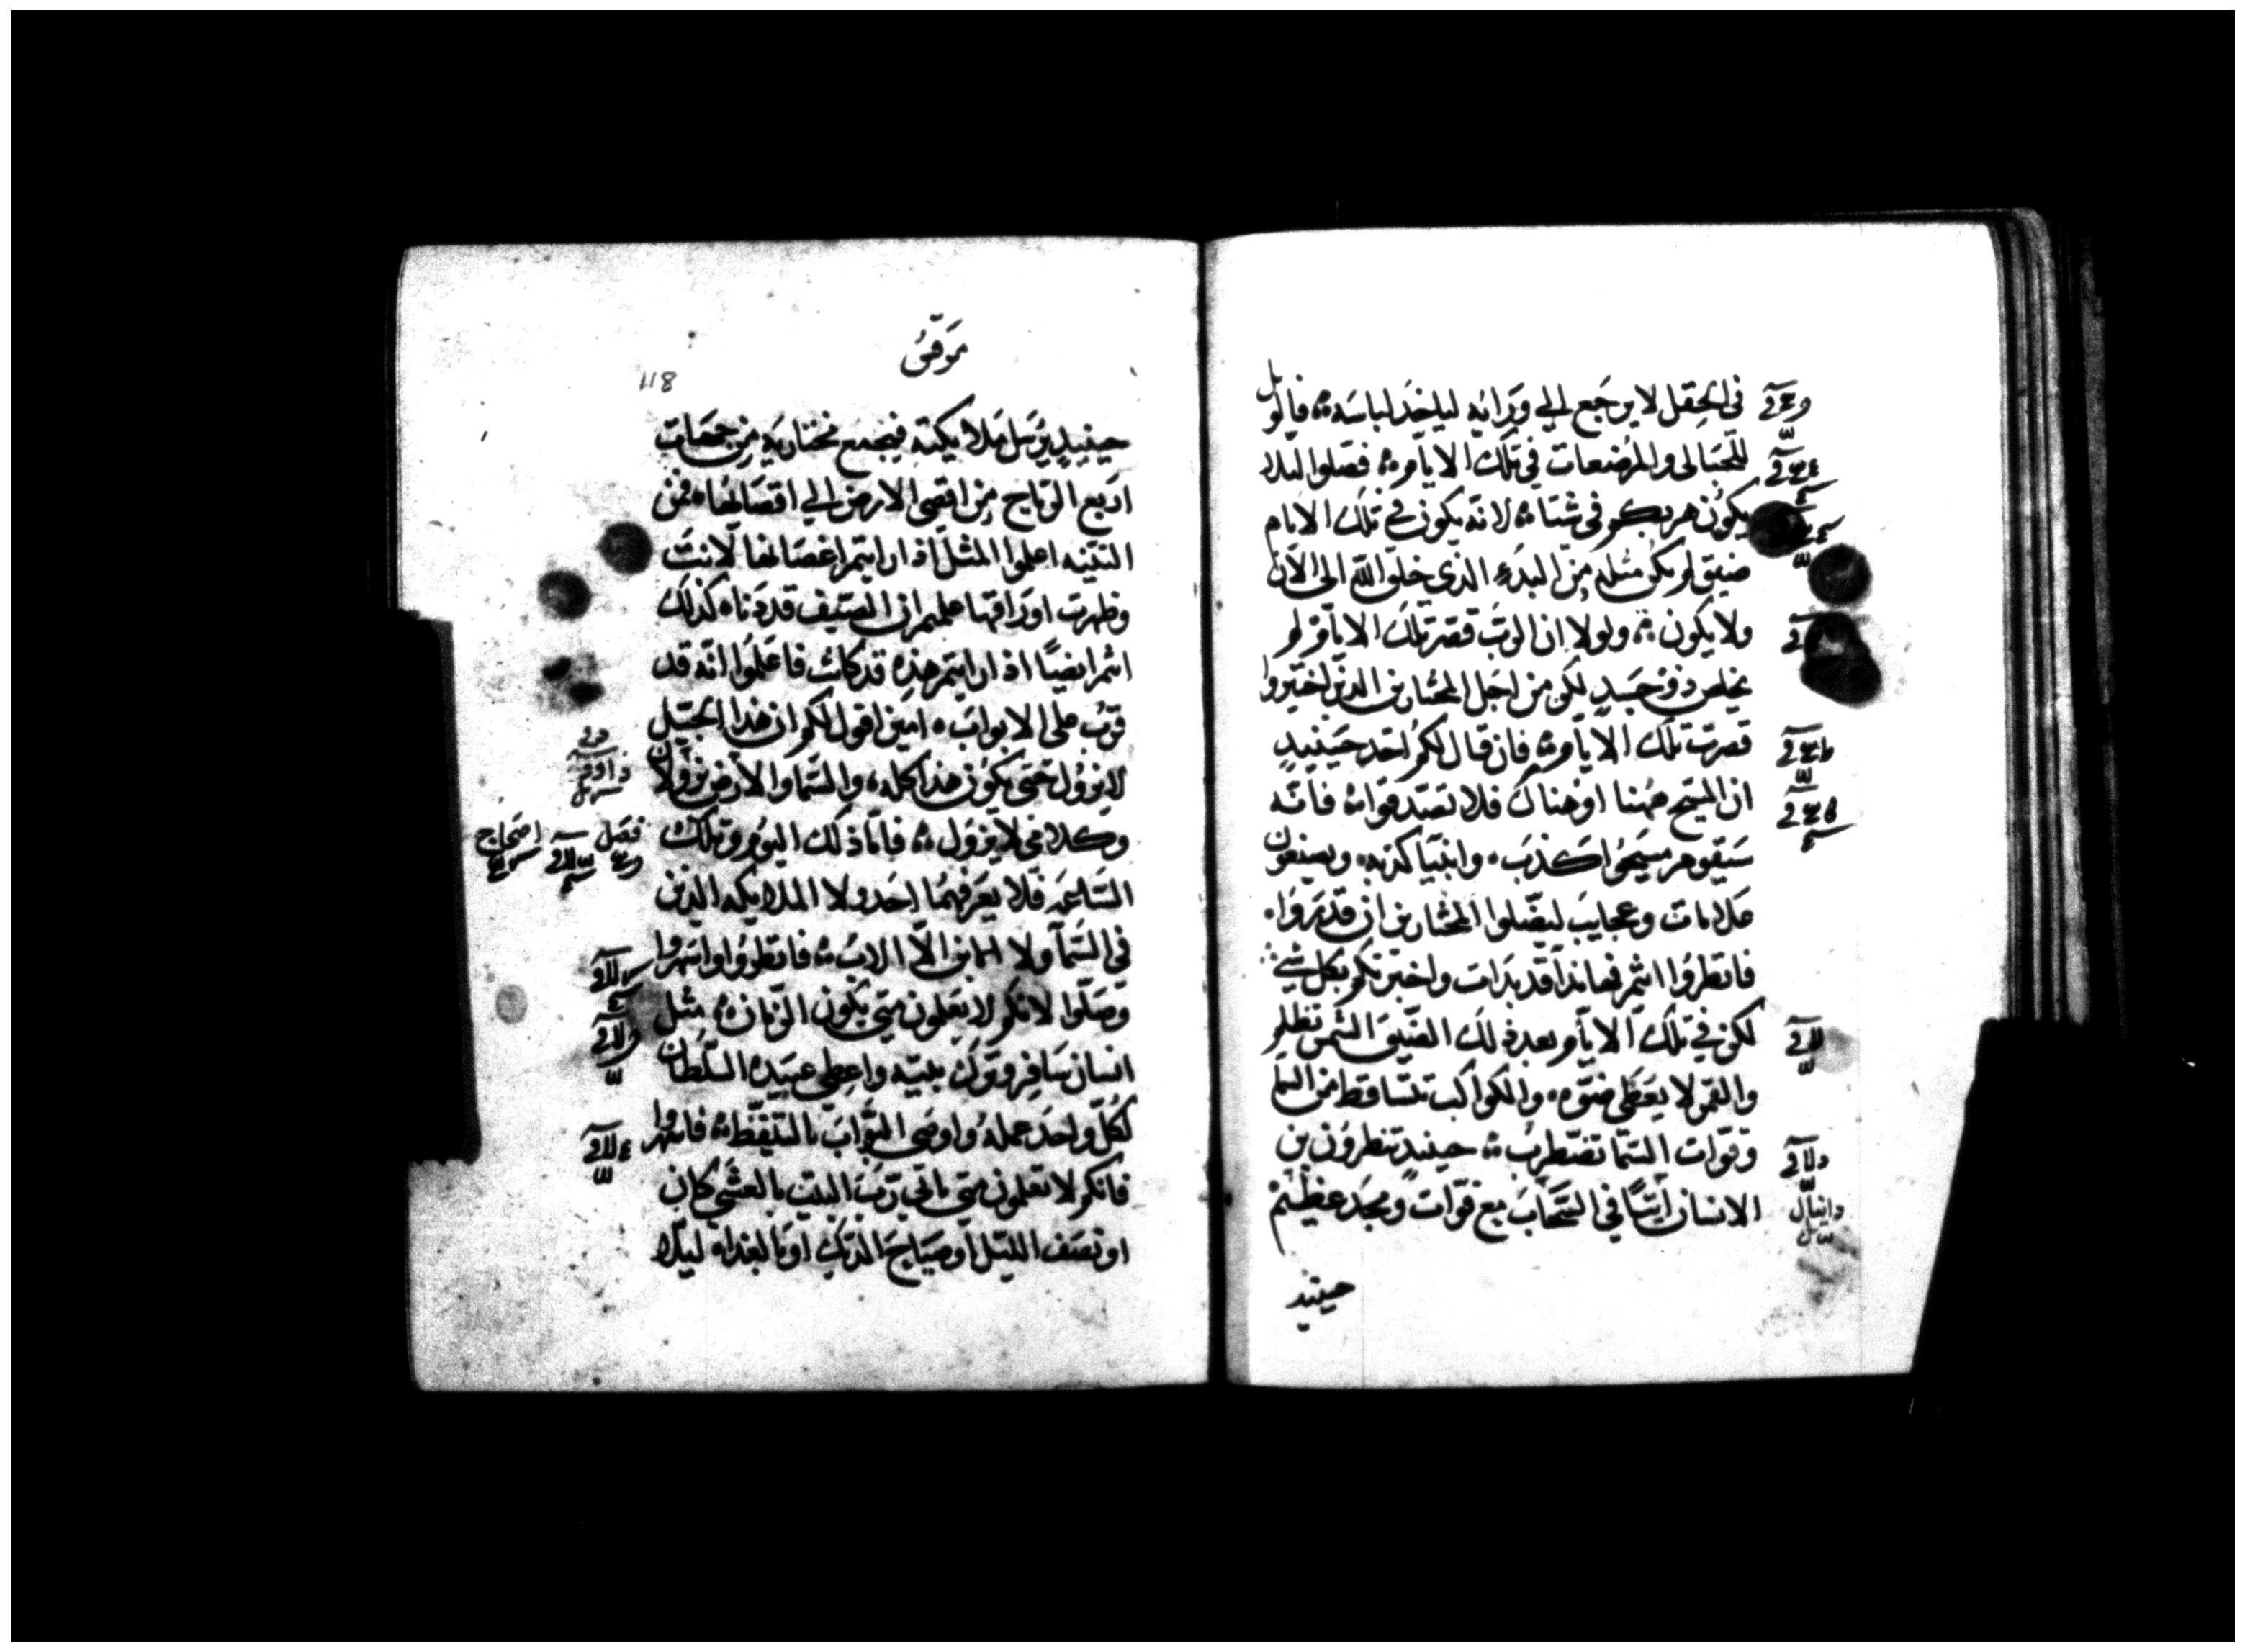 في الحقل لا يرجع الي ورائه لياخد لباسه فالويل
للحبالى والمرضعات في تلك الايام فصلوا ليلا
يكون هربكم في شتاء لانه يكون في تلك الايام
ضيق لم يكن مثله من البدء الذي خلق الله الى الان
ولا يكون ولولا ان الرب قصر تلك الايام لم
يخلص ذو جسد لكن من اجل المختارين الذين اختيروا
قصرت تلك الايام فان قال لكم احد حينيد
ان المسيح ههنا او هناك فلا تصدقوا فانه
سيقوم مسيحوا كذب وانبيا كذبه ويصنعون
علامات وعجايب ليضلوا المختارين ان قدروا
فانظروا انتم فهانذا قد بدات واخبرتكم بكل شي
لكن في تلك الايام بعد ذلك الضيق الشمس تظلم
والقمر لا يعطي ضوه والكواكب تتساقط من السما
وقوات السما تضطرب حينيد تنظرون بن
الانسان اتيا في السحاب مع قوات ومجد عظيم
دانيال
حينيد
مرقس
118
حينيد يرسل ملايكته فيجمع مختاريه من جهات
اربع الرياح من اقصى الارض الي اقصائها فمن
التينه اعلموا المثل اذا رايتم اغصانها لانت
وظهرت اوراقها علمتم ان الصيف قد دنا كذلك
انتم ايضا اذا رايتم هذه قد كانت فاعلموا انه قد
قرب على الابواب امين اقول لكم ان هذا الجيل
لا يزول حتى يكون هذا كله والسما والارض يزولان
وكلامي لا يزول فاما ذلك اليوم وتلك
الساعه فلا يعرفهما احد ولا الملايكه الذين
في السما ولا الابن الا الاب فانظروا واسهروا
وصلوا لانكم لا تعلمون متى يكون الزمان مثل
انسان سافر وترك بيته واعطي عبيده السلطان
لكل واحد عمله واوصى البواب بالتيقظ فاسهروا
فانكم لا تعلمون متى ياتي رب البيت بالعشي كان
او نصف الليل او صياح الديك او بالغداه ليلا
داود
فصل
اصحاح